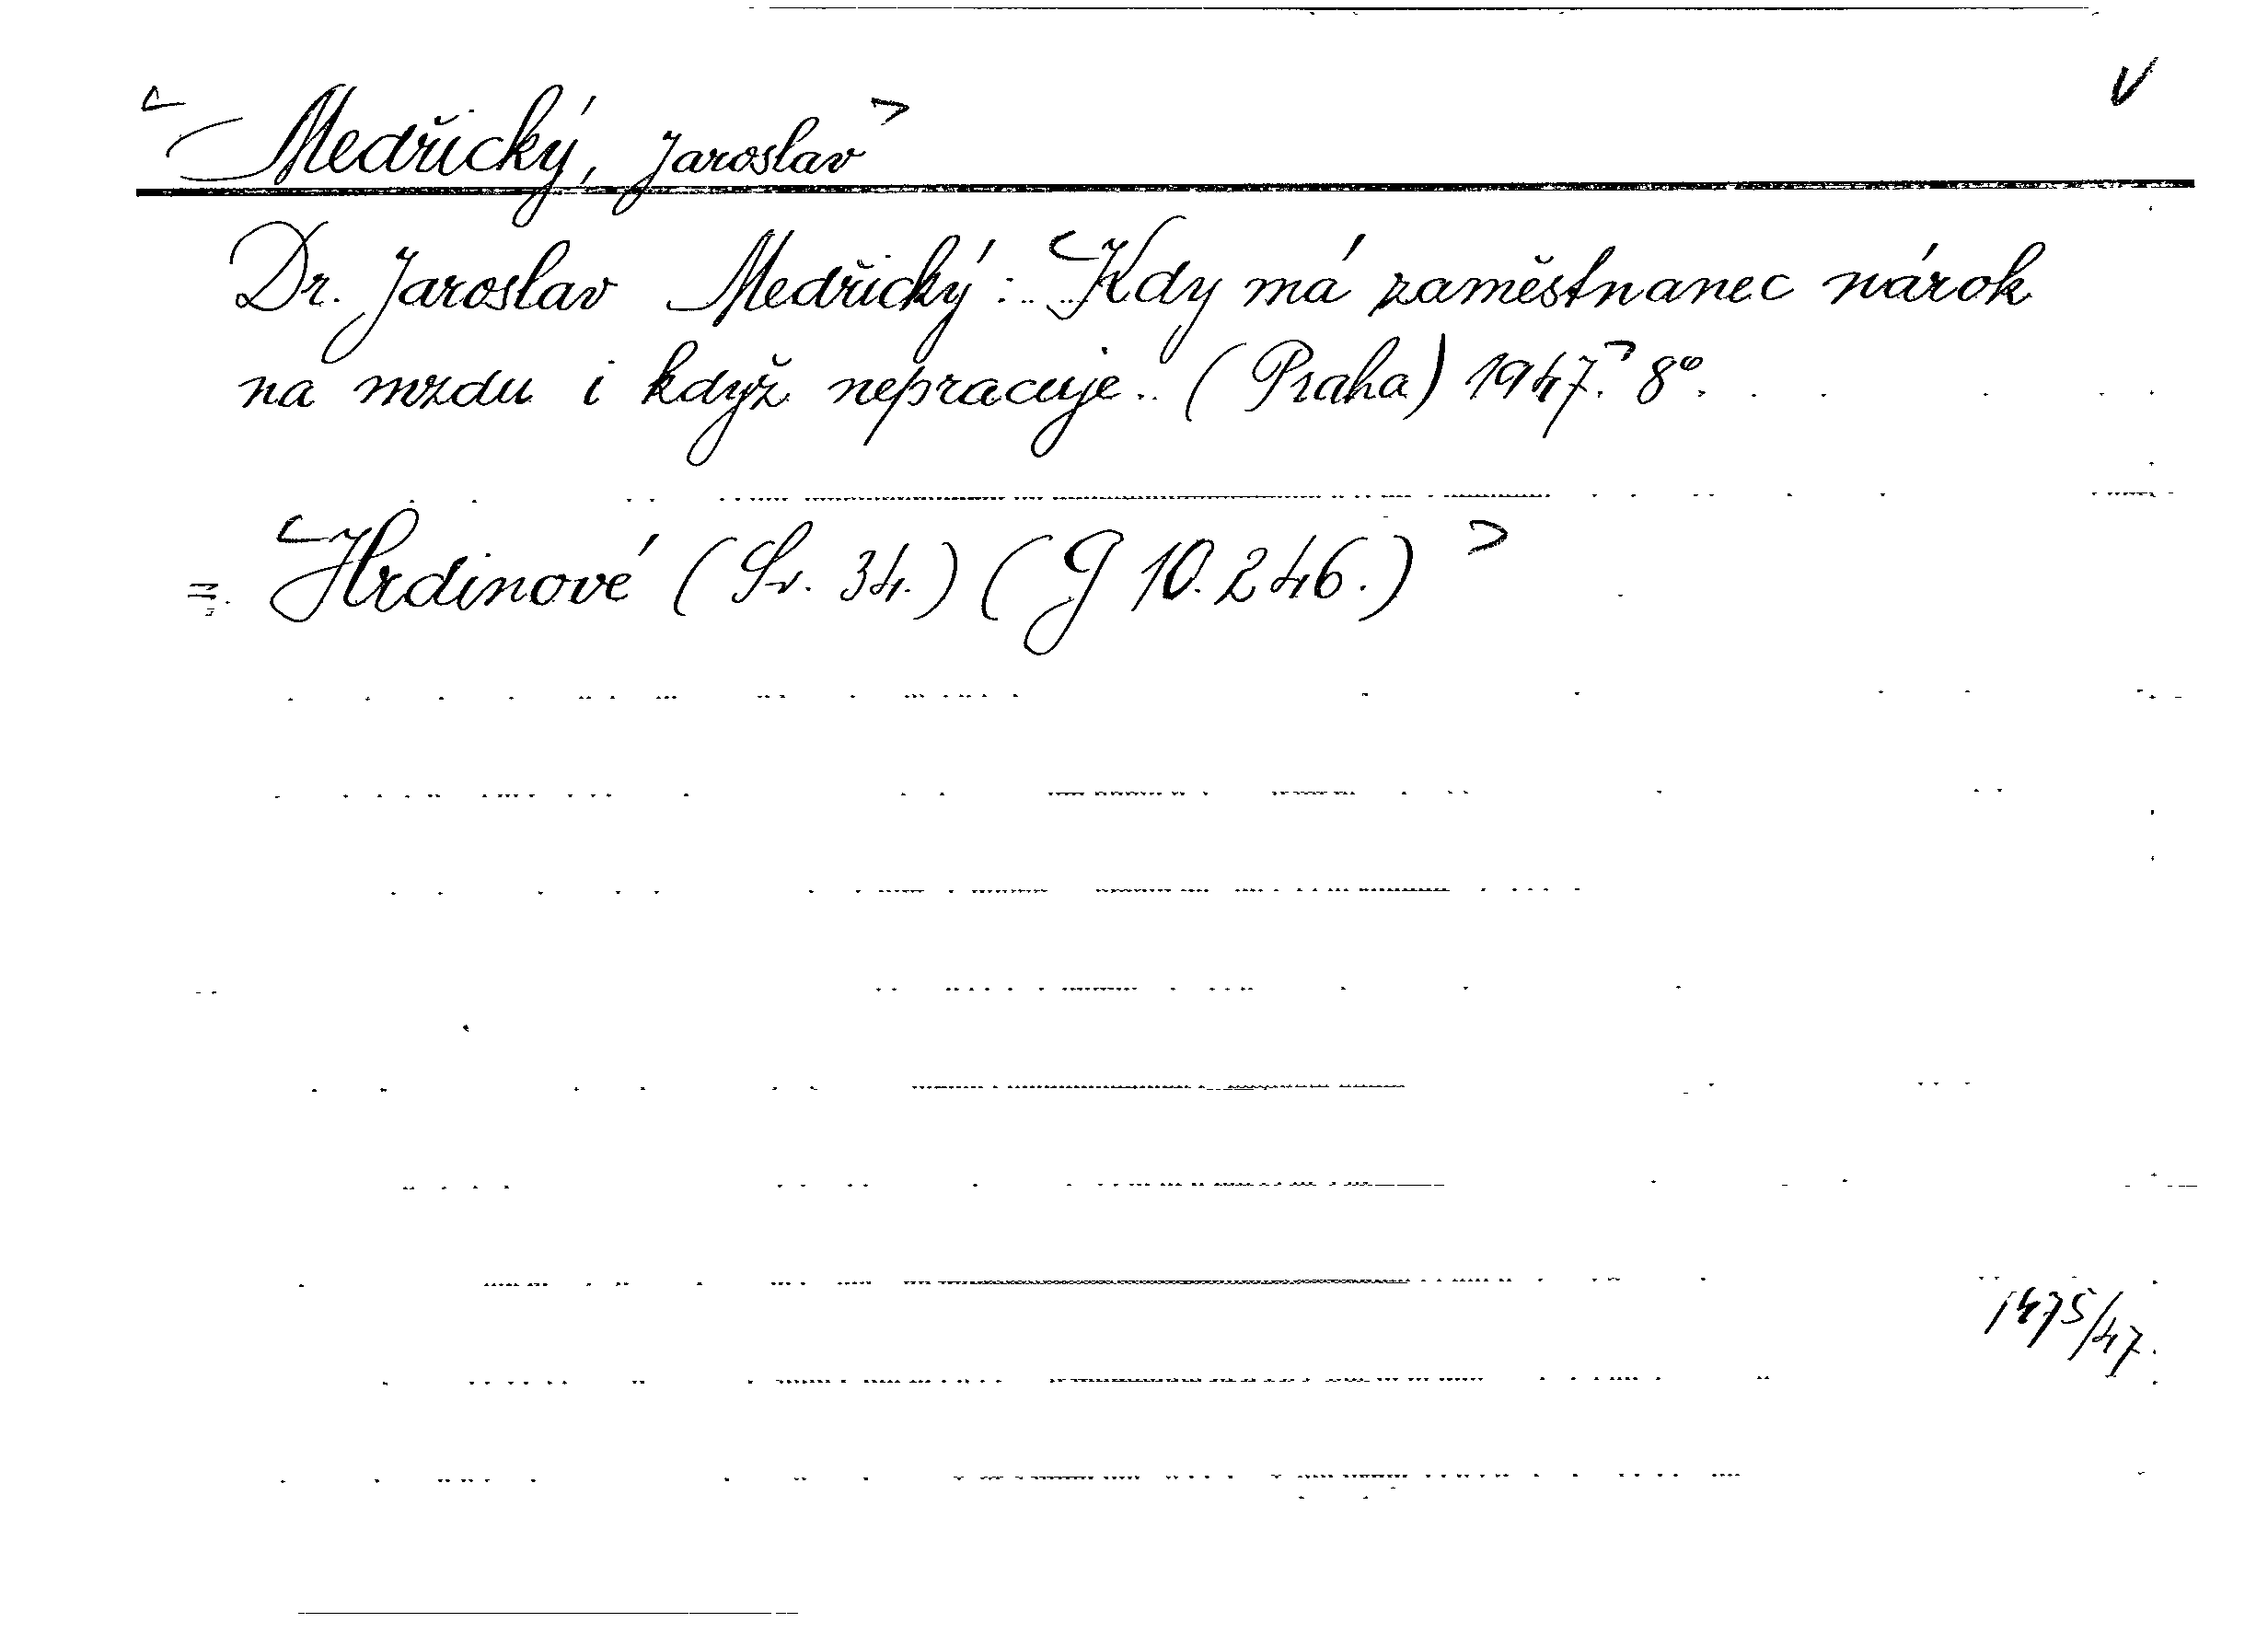 Medřický, Jaroslav
Dr. Jaroslav Medřický: Kdy má zaměstnanec nárok
na mzdu i když nepracuje. (Praha) 1947. 8°.
= Hrdinové (Sv. 34.) (G 10.246.)
1475/47.